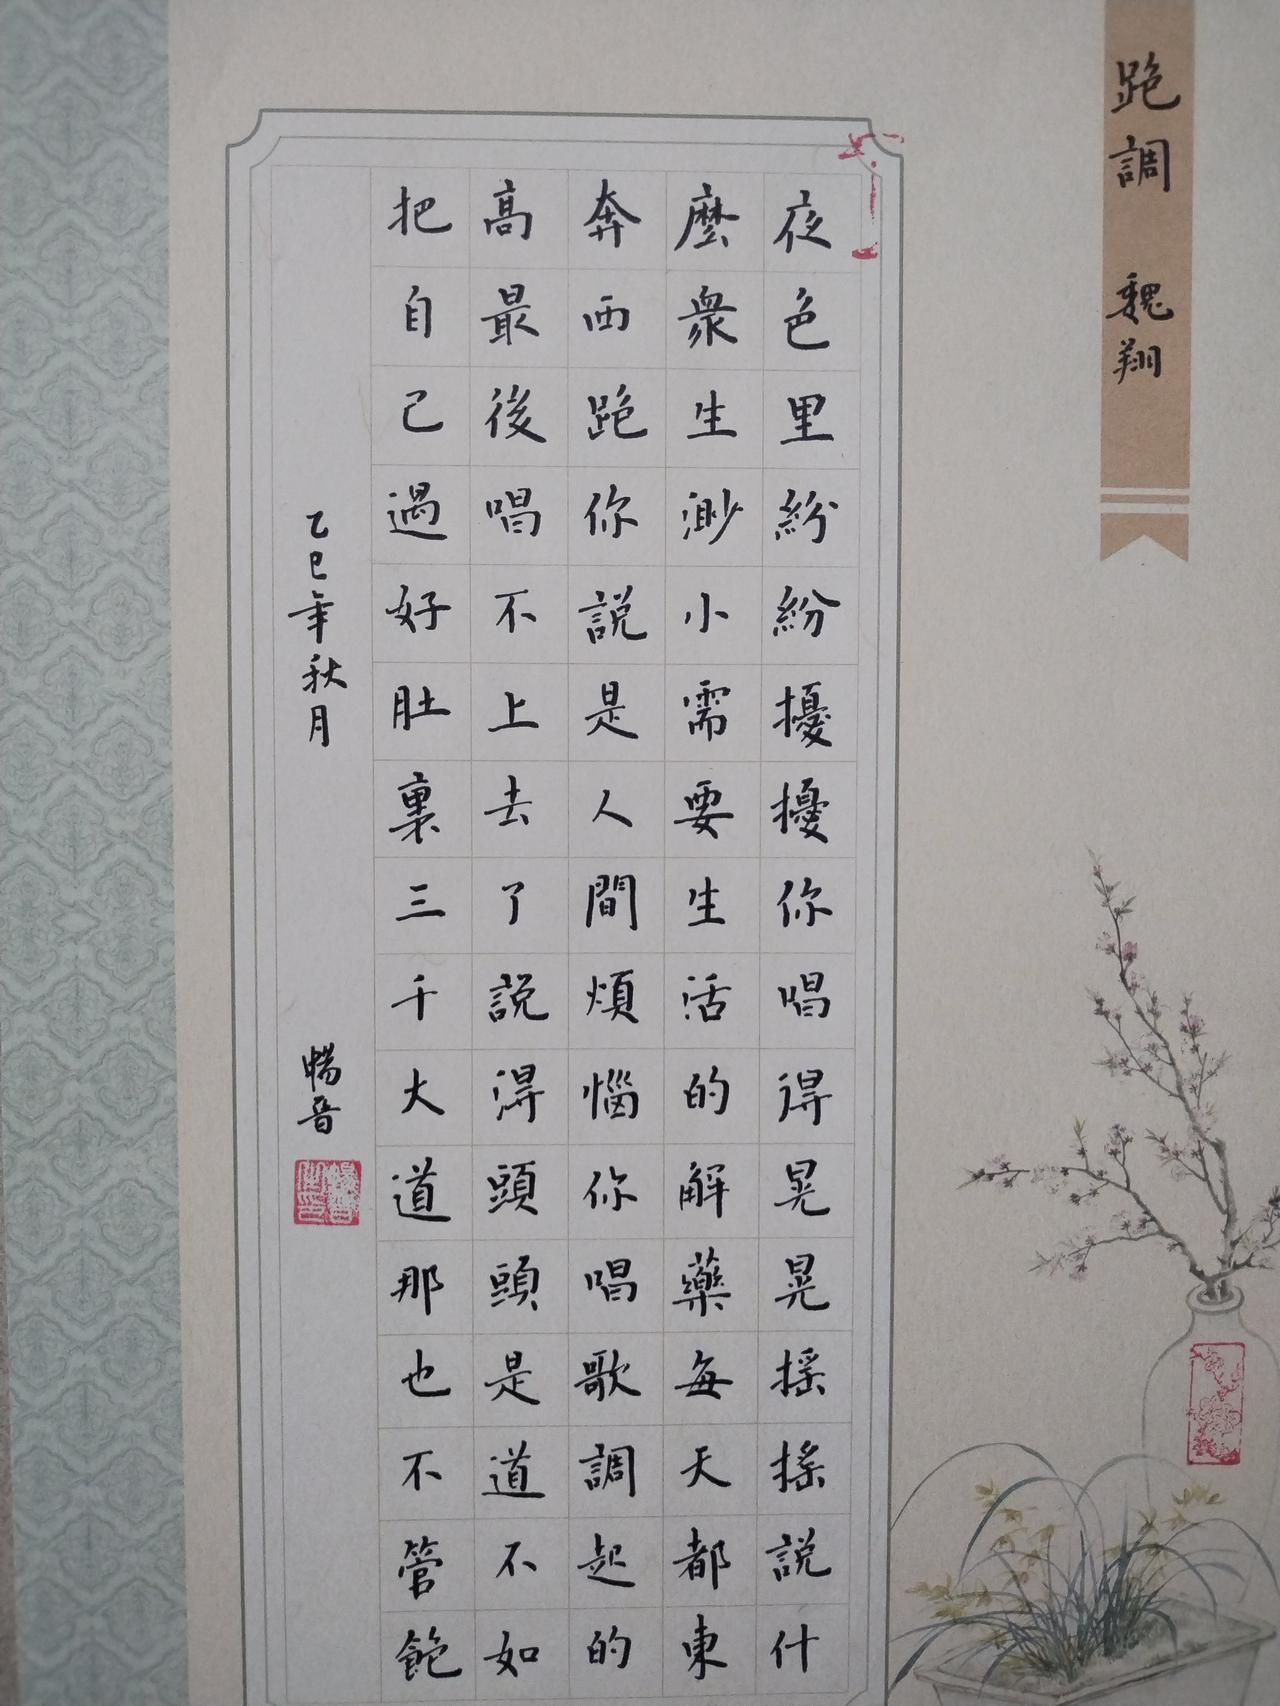 跑調 魏翔
夜色里紛紛擾擾你唱得晃晃搖搖說什
麼衆生渺小需要生活的解藥每天都東
奔西跑你說是人間煩惱你唱歌調起的
高最後唱不上去了說得頭頭是道不如
把自己過好肚裏三千大道那也不管飽
乙巳年秋月 暢晉